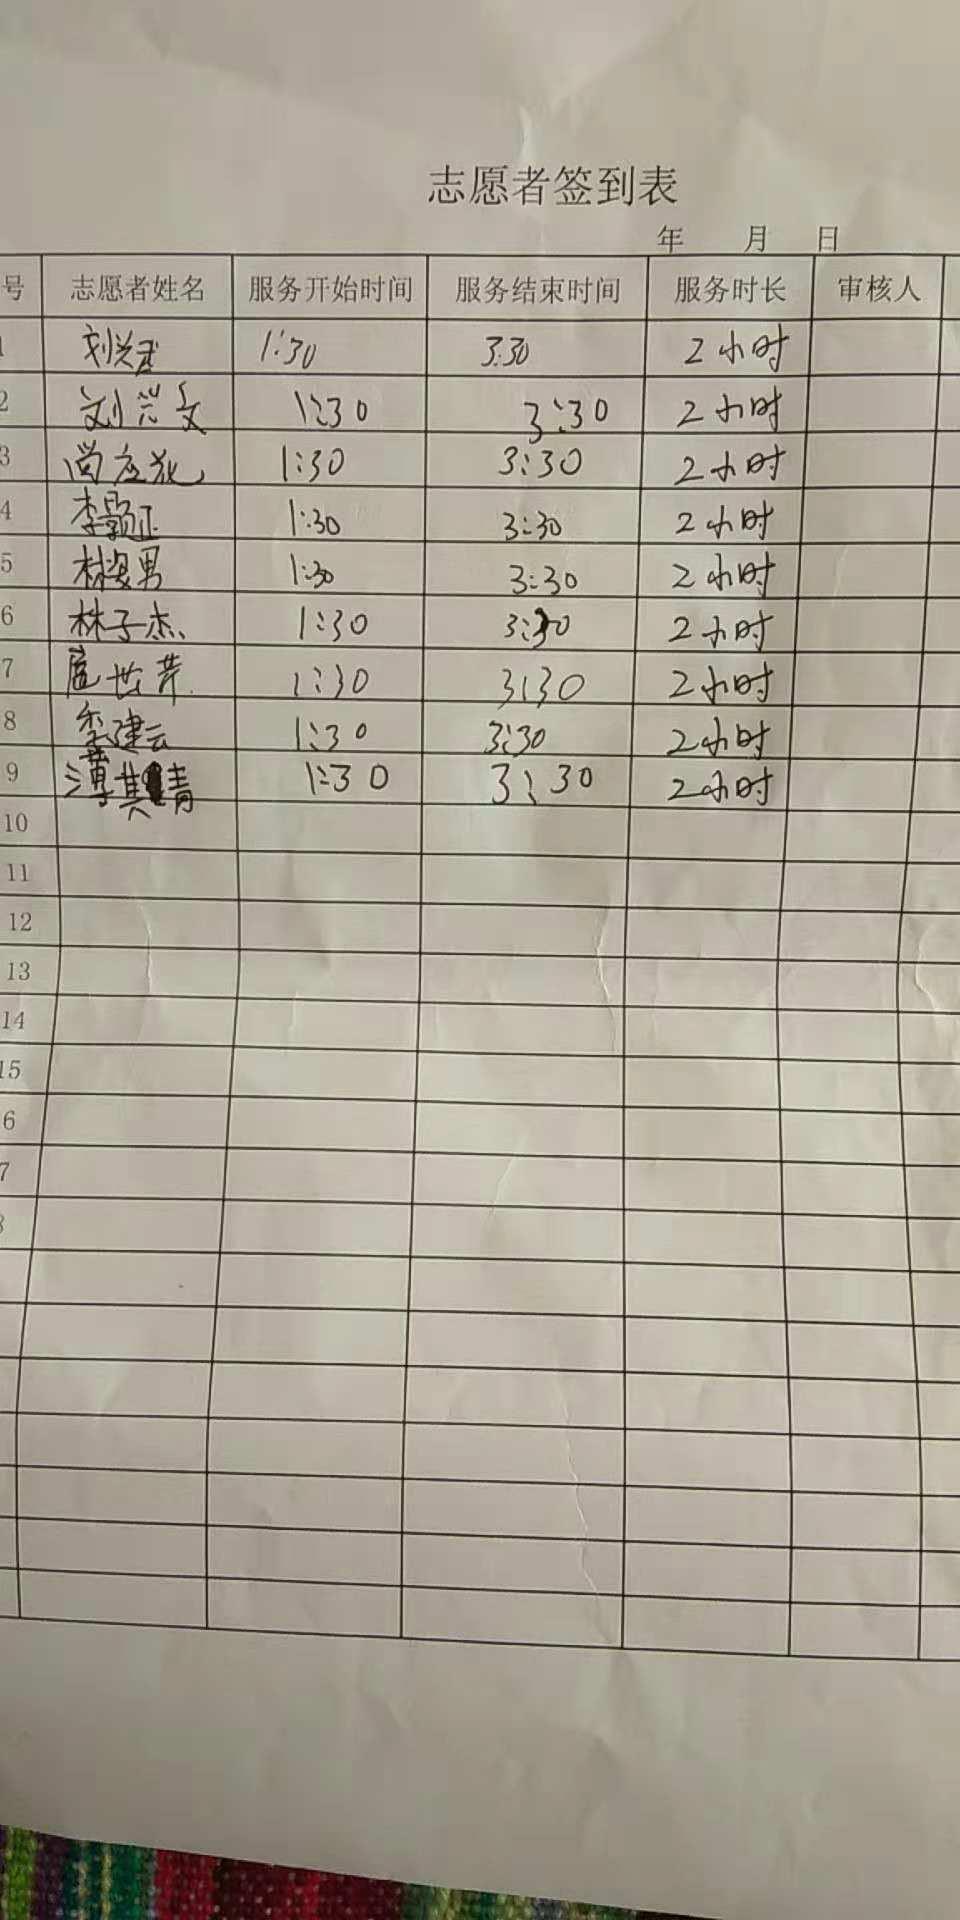 志愿者签到表
年 月 日
号 志愿者姓名 服务开始时间 服务结束时间 服务时长 审核人
1 刘兴武 1:30 3:30 2小时
2 刘兴文 1:30 3:30 2小时
3 1:30 3:30 2小时
4 李颢正 1:30 3:30 2小时
5 男 1:30 3:30 2小时
6 林子杰 1:30 3:30 2小时
7 世芹 1:30 3:30 2小时
8 李建云 1:30 3:30 2小时
9 其青 1:30 3:30 2小时
10
11
12
13
14
15
6
7
8